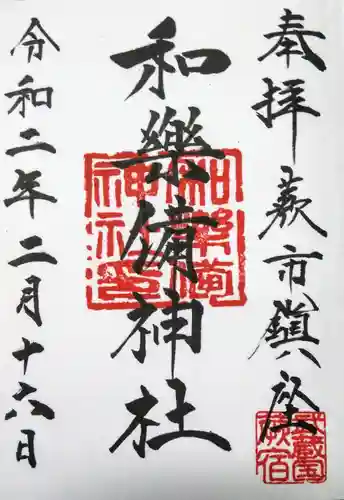 奉拝 蕨市鎮座
和樂備神社
令和二年二月十六日
和樂備神社印
武蔵国蕨宿